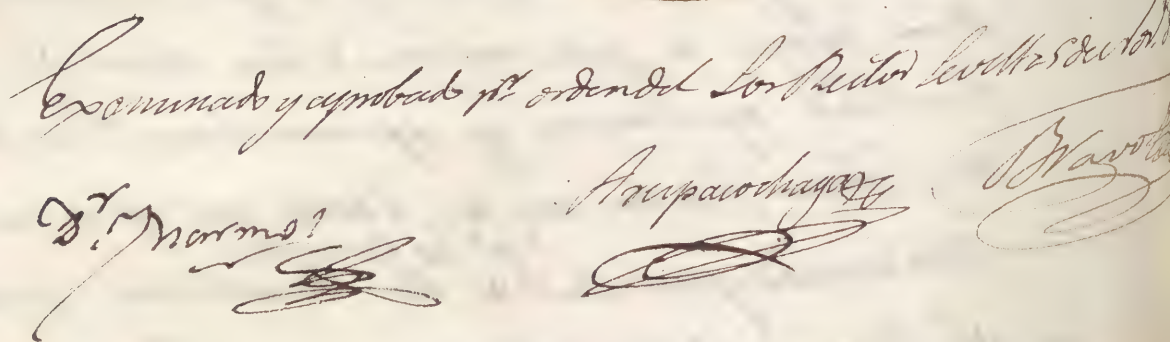 Examinado y aprobado pr. orden del Sor Rector Sevilla 5 de
Dr. Marmol Arespacochaga Bravo